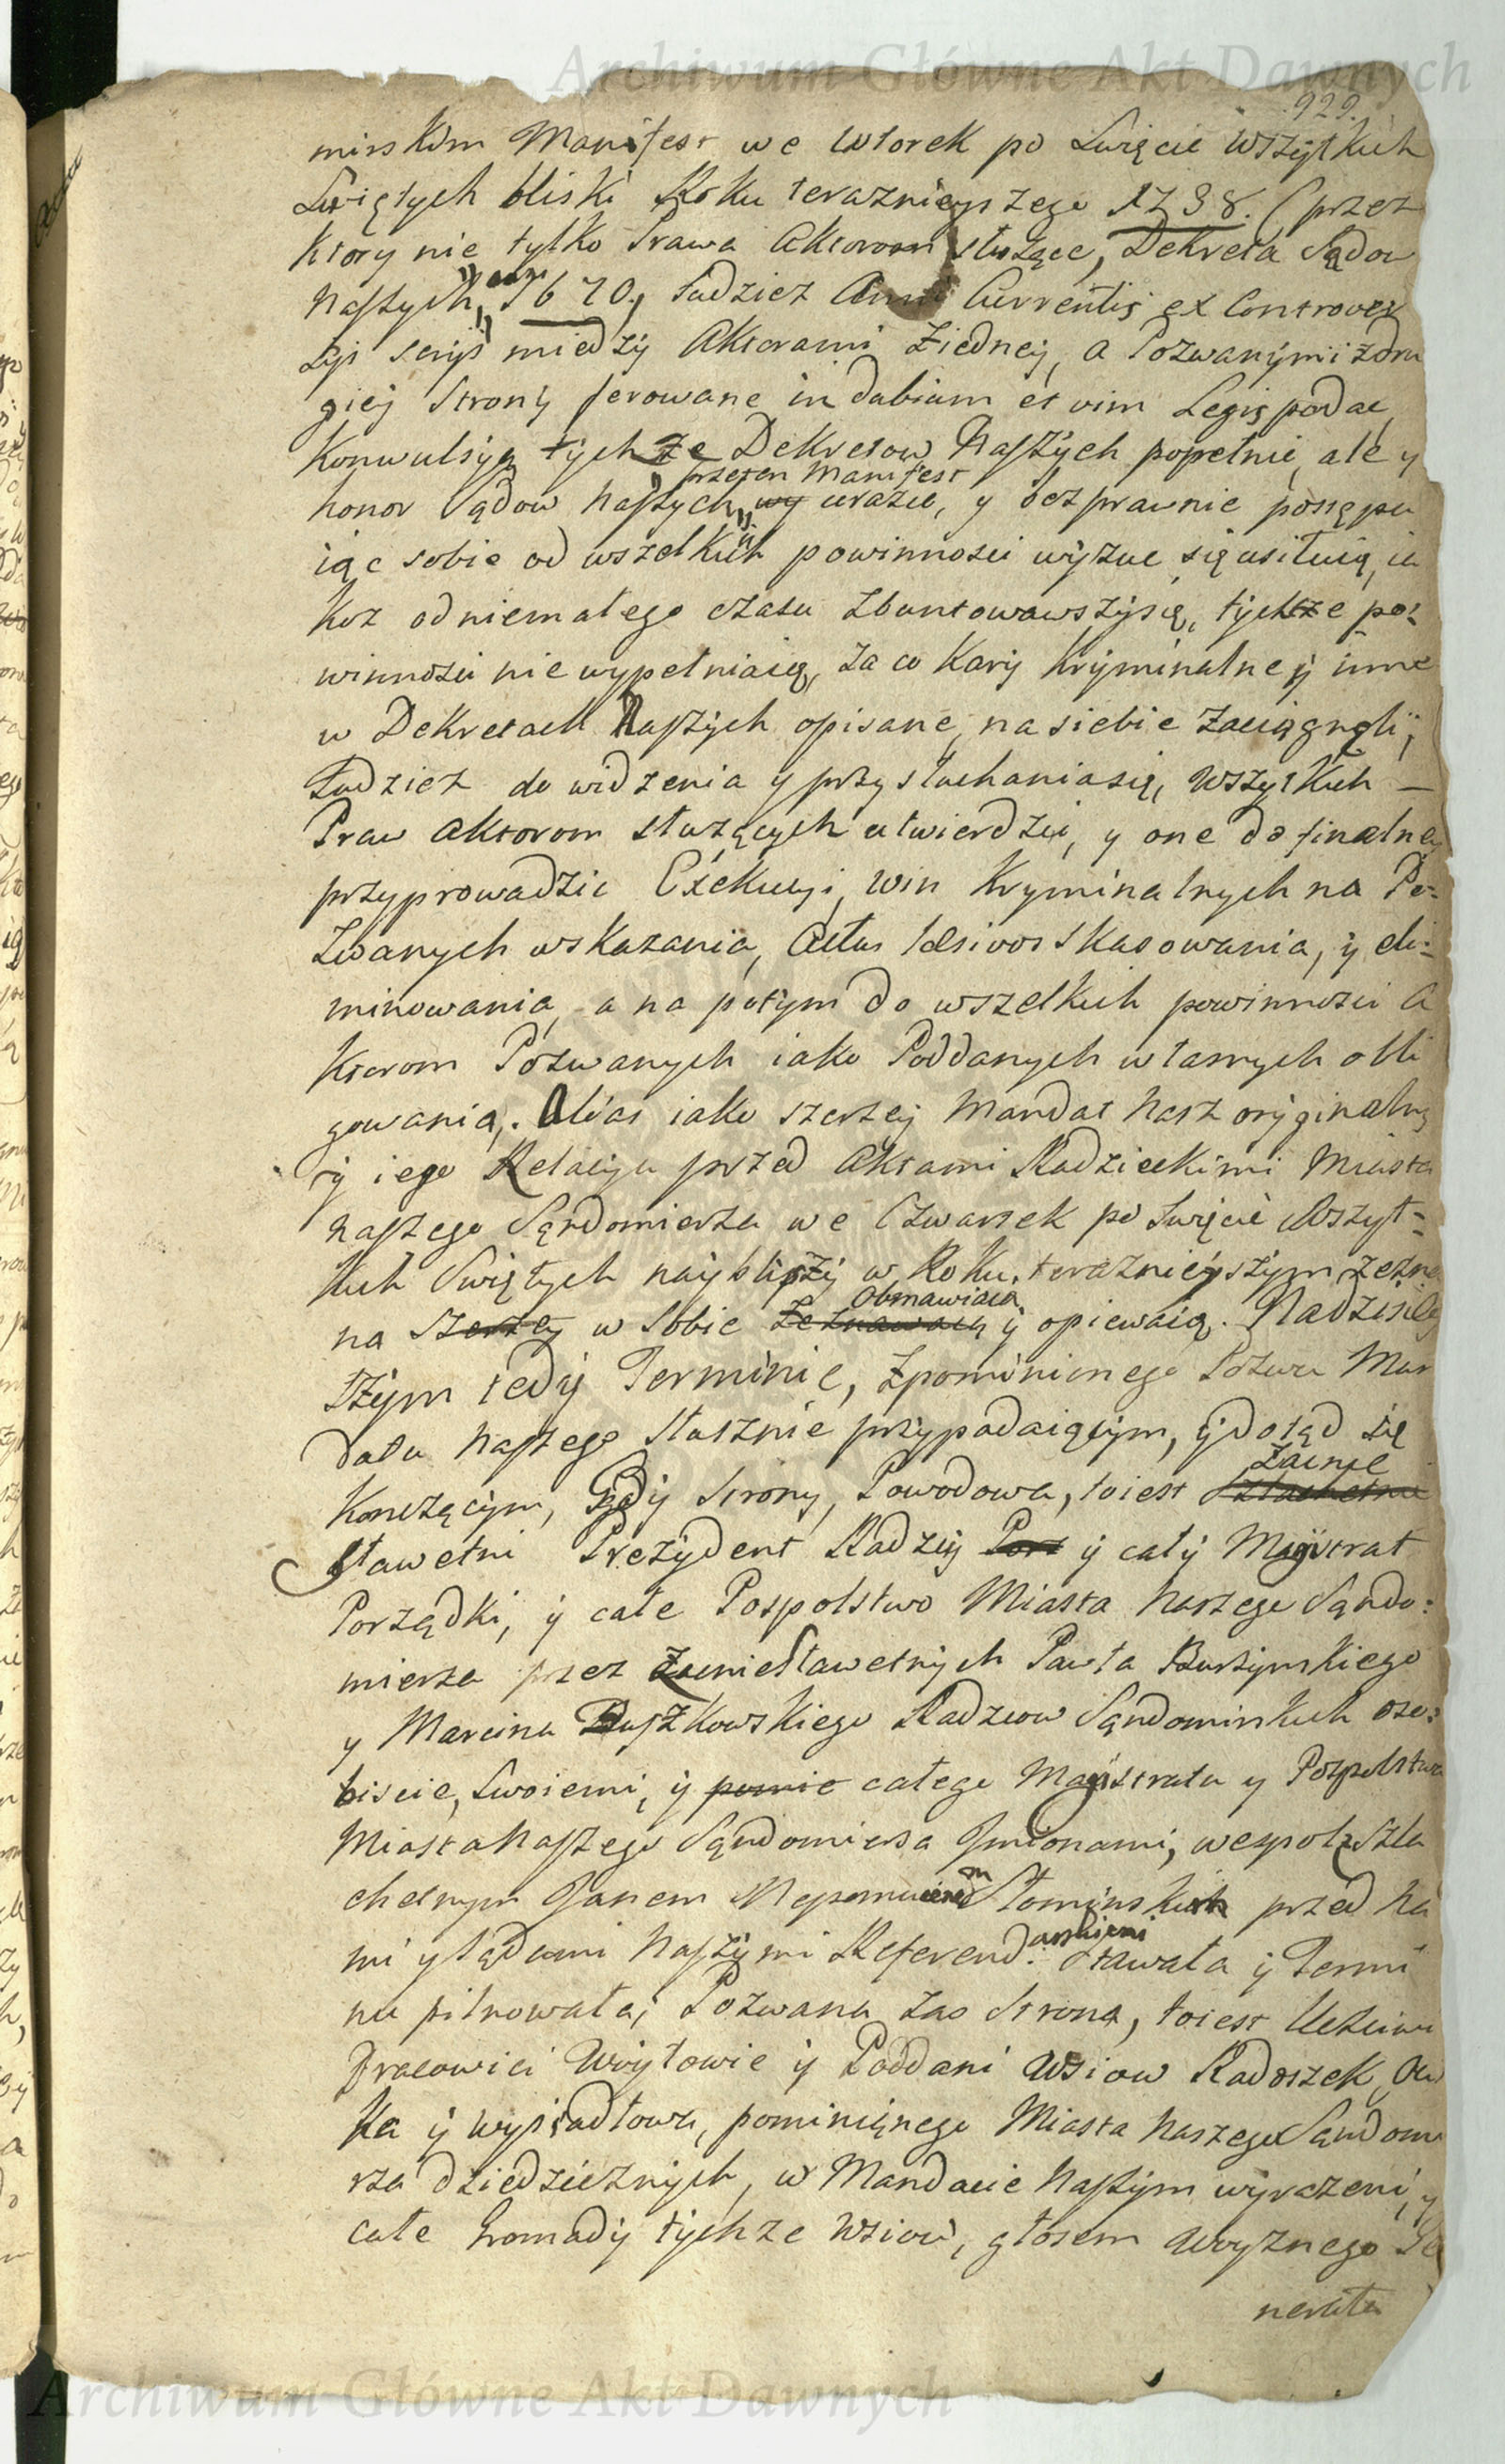 Archiwum Główne Akt Dawnych
929.
mirskim Manifest we Wtorek po Swięcie Wszystkich
Swiętych bliski Roku teraznieyszego 1738. (przez
ktory nie tylko Prawa Aktorom służące, Dekreta Sądow
Naszych, 1670, tudziez Anni Currentis ex Controver
miedzy Aktorami ziedney, a Pozwanymi zdru
giey Strony ferowane in dubium et vim Legis podac
Konwulsyą tychze Dekretow Naszych popełnic, ale y
przeten Manifest
honor Sądow Naszych wy urazic, y bezprawnie postępu
iąc sobie od wszelkich powinnosci wyzuc się usiłuią, ia
koz odniemałego czasu zbuntowawszysię, tychze po:
winnosci nie wypełniaią, za co Kary Kryminalne y inne
w Dekretach Naszych opisane, na siebie zaciągneli;
Tudziez do widzenia y przysłuchania się, Wszystkich –
Praw Aktorom służących utwierdzic, y one do finalney
przyprowadzic Exekucyi, Win Kryminalnych na Po:
zwanych wskazania, skasowania, y eli:
minowania, a na potym do wszelkich powinnosci A
ktorom Pozwanych iako Poddanych własnych obli
gowania,. iako szerzey Mandat Nasz oryginalny
y iego Relacya przed Aktami Radzieckimi Miasta
Naszego Sąndomierza we Czwartek po Swięcie Wszyst=
kich Swiętych nayblizszy w Roku teraznieyszym zezna
Obmawiaią
na szerzey w Sobie zeznawaią y opiewaią. Nadzisiey
szym tedy Terminie, zpomnionego Pozwu Man
datu Naszego słusznie przypadaiącym, y dotąd się
Zacnie
Konczącym, Gdy Strony Powodowa, toiest Szlachetni
Sławetni Prezydent Radzcy Porz y cały Magistrat
Porządki, y całe Pospolstwo Miasta Naszego Sąndo:
mierza przez Zacniesławetnych Pawła Burzynskiego
y Marcina Buszkowskiego Radzcow Sąndomirskich oso:
biscie, Swoiemi, y całego Magistratu y Pospolstwa
Miasta Naszego Sąndomierza Jmionami, wespoł z Szla
chetnym Janem Nepomucenem Słominskim przed Na
mi y Sądami Naszymi Referend.arskiemi stawała y Termi
nu pilnowała; Pozwana zas Strona, toiest Uczciwi
Pracowici Woytowie y Poddani Wsiow Radoszek,
ka y wysiadłowa, pominięnego Miasta Naszego Sandomi
rza dziedzicznych, w Mandacie Naszym wyrazeni, y
całe Gromady tychze Wsiow, głosem Woznego Je
nerała
Archiwum Główne Akt Dawnych